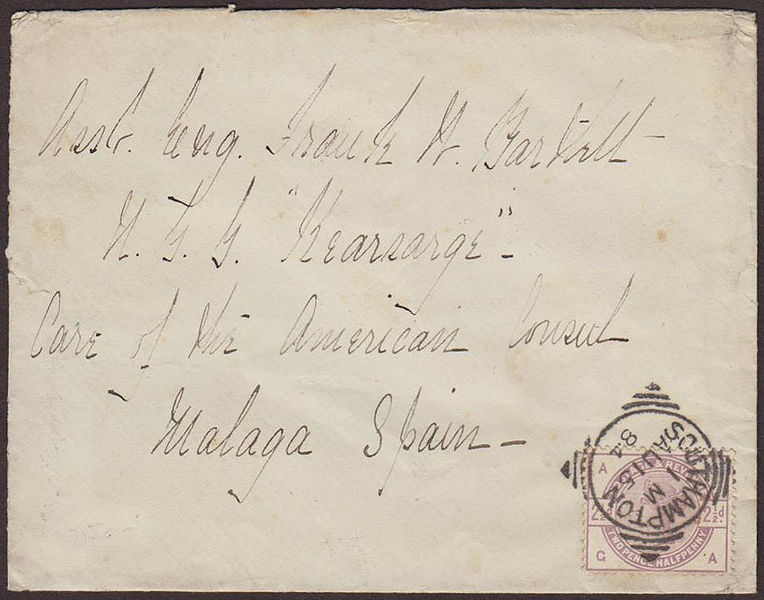 Asst. Eng. Frank H. Bartlett
U. S. S. "Kearsarge"
Care of the American Consul
Malaga Spain
SOUTHAMPTON
1 M
AU 15
84
A
REV
2½d
TWO PENCE HALFPENNY
G A